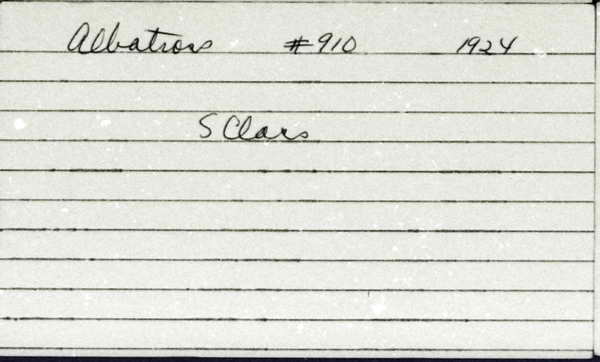 Albatross #910 1924
S Class